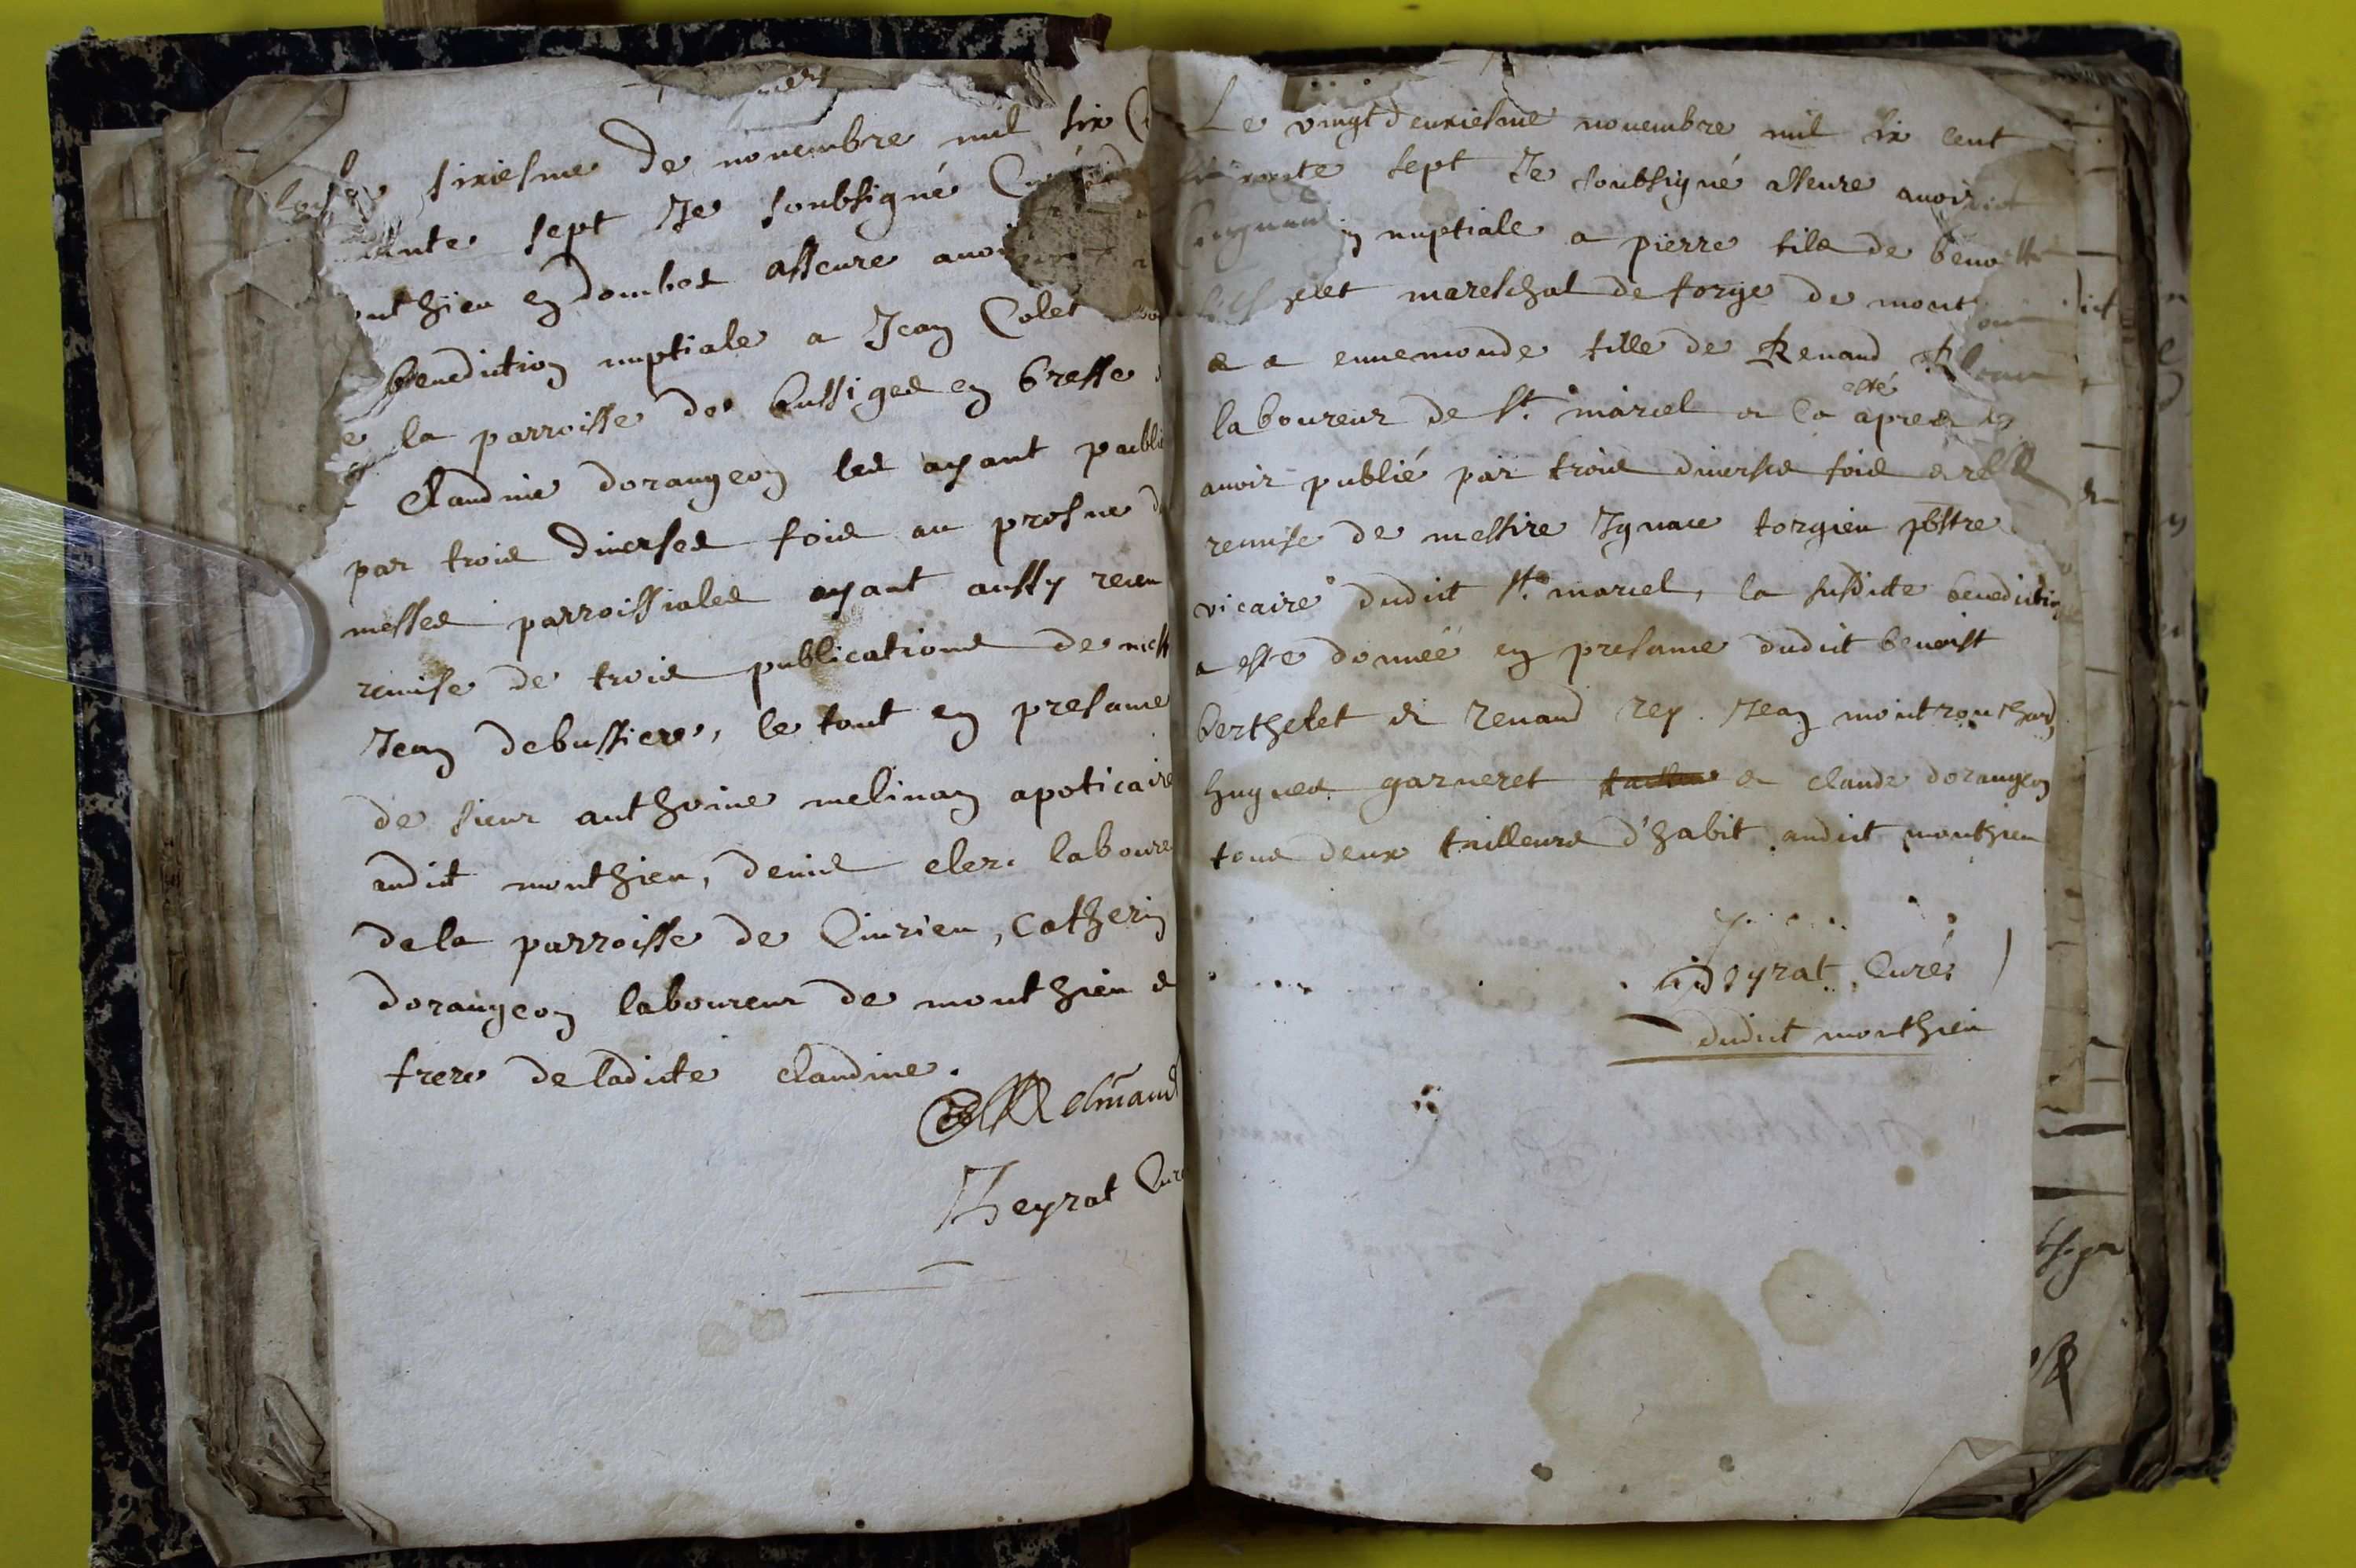 sixiesme de novembre mil six
sept Je soubsigné
en dombes asseure avoir
benediction nuptiale a Jean Colet
la parroisse de bussiges en bresse
Claudine dorangeon les ayant publi
par trois diverses fois au prosne d
messes parroissiales ayant aussy receu
remise de trois publications de mess
Jean debussiere, le tout en presance
de sieur anthoine melinan apoticaire
audit monthieu, denis clerc laboure
de la parroisse de Civrieu, Catherin
dorangeon laboureur de monthieu &
frere de ladicte claudine.
Theyrat Curé
Le vingt deuxiesme novembre mil six cent
sept Je soubsigné asseure avoir
nuptiale a pierre fils de benoist
mareschal de forge de mont
& a ennemonde fille de Renaud
laboureur de St. marcel & Ca esté apres les
avoir publié par trois diverses fois &
remise de messire Ignace forgieu pbstre
vicaire dudit St. marcel, la susdicte benediction
a este donnéé en presance dudit benoist
berthelet & renaud rey. Jean montrouchard
hugues garneret & claude dorangeon
tous deux tailleurs d'habit audit monthieu
Theyrat Curé
dudit monthieu